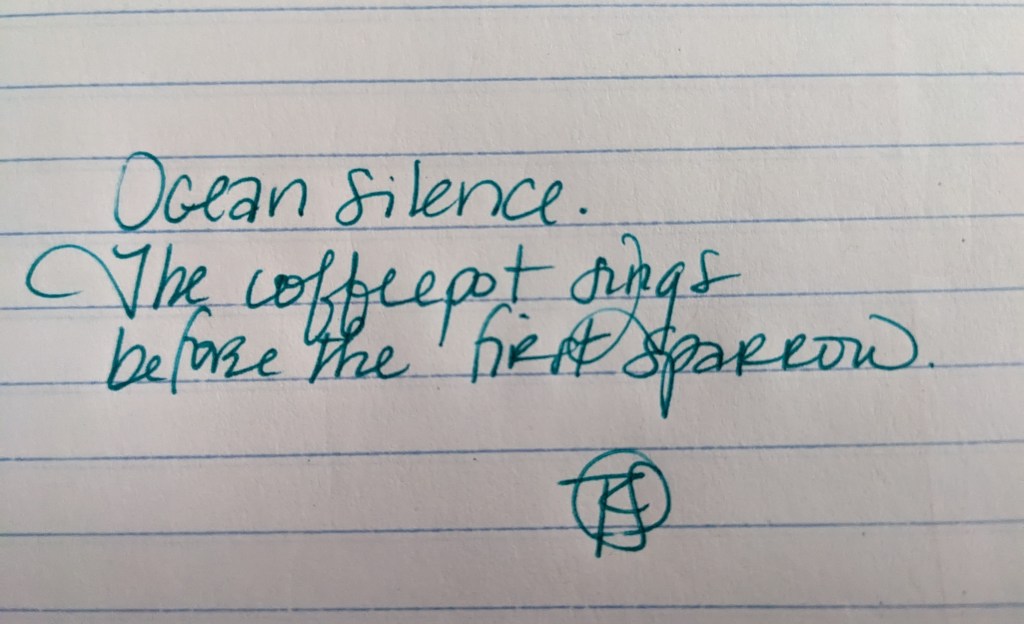 Ocean silence.
The coffeepot sings
before the first sparrow.